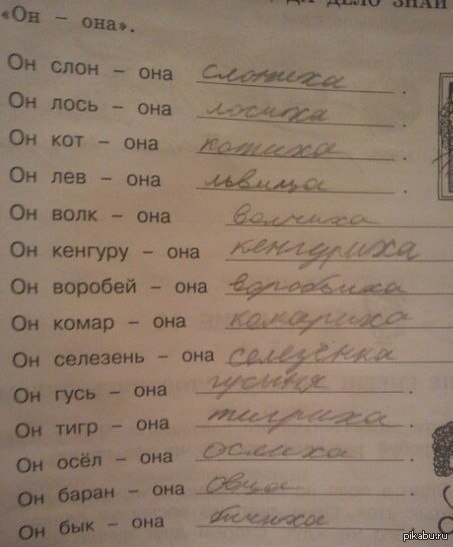 ДА ДЕЛО ЗНАЙ
«Он – она».
Он слон – она слониха.
Он лось – она лосиха.
Он кот – она котиха.
Он лев – она львица.
Он волк – она волчиха
Он кенгуру – она кенгуриха
Он воробей – она воробьиха
Он комар – она комариха
Он селезень – она селезёнка
Он гусь – она гусиня.
Он тигр – она тигриха.
Он осёл – она ослиха.
Он баран – она овца.
Он бык – она бычиха.
pikabu.ru